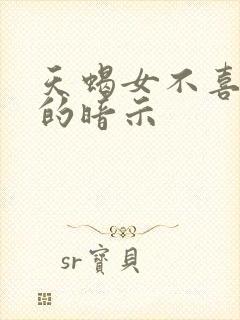 天蝎女不喜
的暗示
sr寶貝